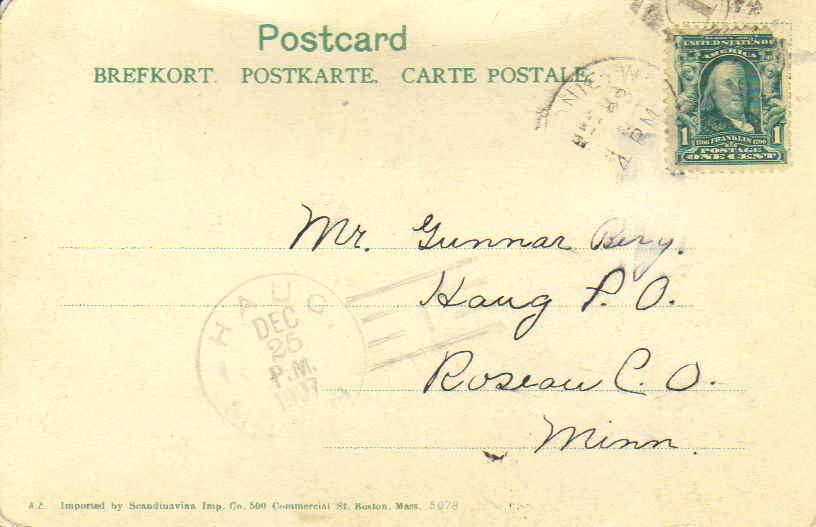 Postcard
BREFKORT. POSTKARTE. CARTE POSTALE.
UNITED STATES OF
AMERICA
1 1706 FRANKLIN 1790 1
POSTAGE
ONE CENT
4 PM
1
Mr. Gunnar Berg.
Haug P. O.
Roseau C. O.
Minn.
HAUG
DEC
25
P.M.
1907
A.E. Imported by Scandinavian Imp. Co. 500 Commercial St. Boston, Mass. 5078